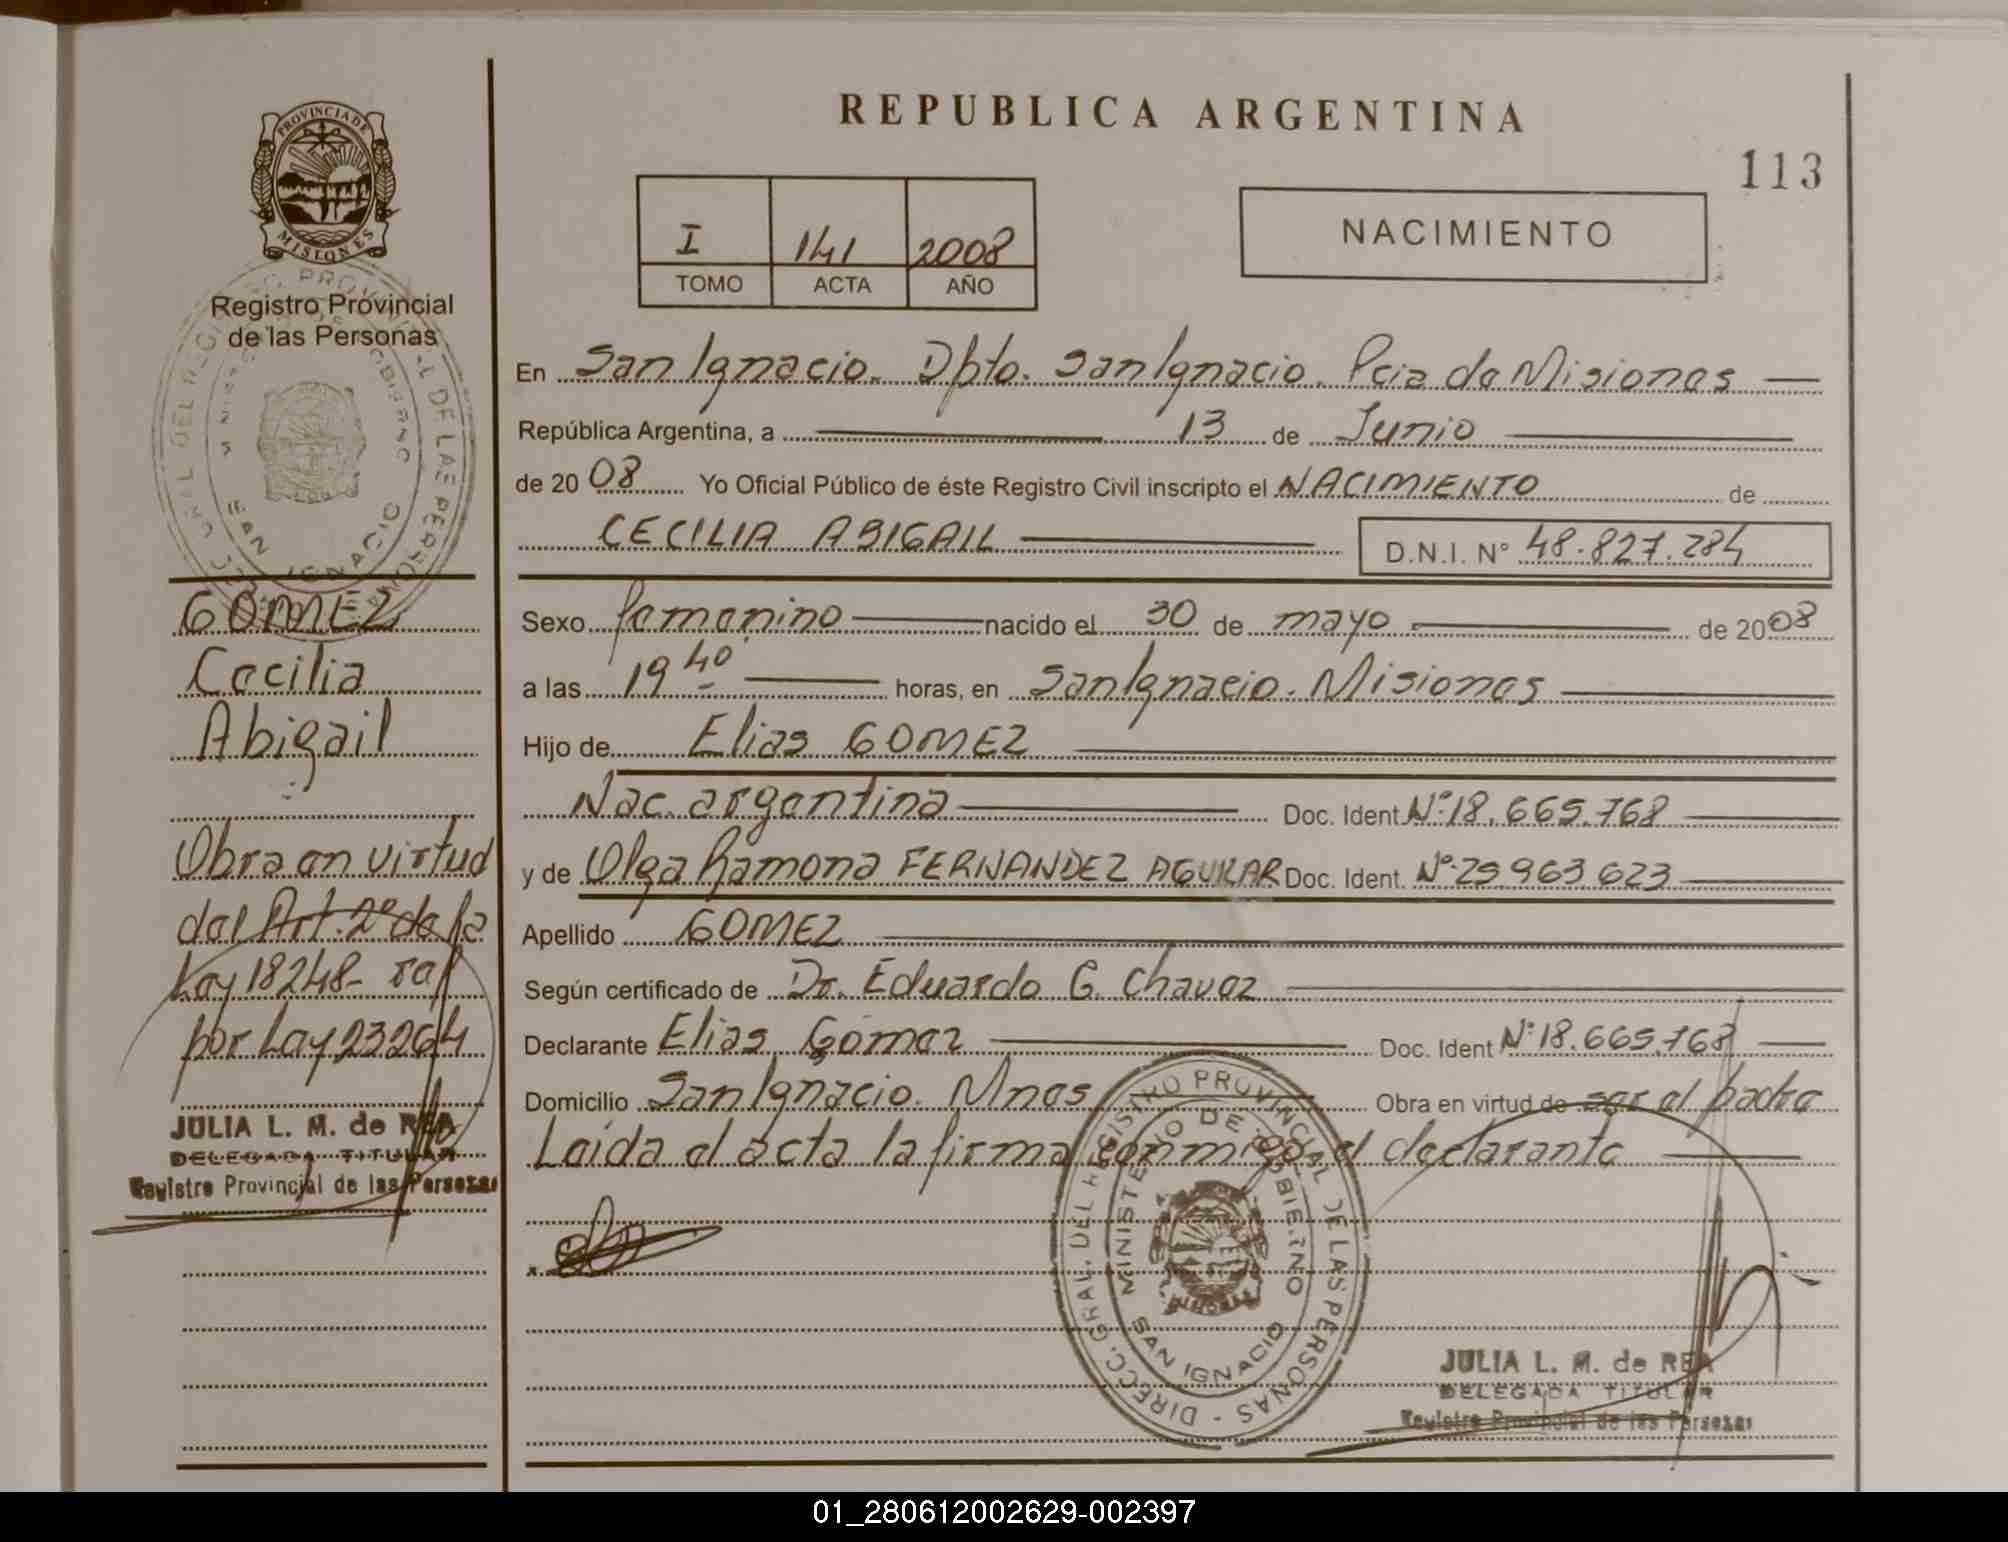 REPUBLICA ARGENTINA
113
I 141 2008
TOMO ACTA AÑO
NACIMIENTO
PROVINCIA DE
MISIONES
Registro Provincial
de las Personas
GOMEZ
Cecilia
Abigail
Obra en virtud
del Art. 2º de la
Ley 18248- ref
por Ley 23264
JULIA L. M. de REA
DELEGADA TITULAR
Registro Provincial de las Personas
En San Ignacio. Dpto. San Ignacio. Pcia de Misiones
República Argentina, a 13 de Junio
de 20 08 Yo Oficial Público de éste Registro Civil inscripto el NACIMIENTO de
CECILIA ABIGAIL D.N.I. N° 48.827.284
Sexo femenino nacido el 30 de mayo de 20 08
a las 19 40 horas, en San Ignacio. Misiones
Hijo de Elias GOMEZ
Nac. argentina Doc. Ident Nº 18.665.768
y de Olga Ramona FERNANDEZ AGUILAR Doc. Ident. Nº 29 963 623
Apellido GOMEZ
Según certificado de Dr. Eduardo G. Chavez
Declarante Elias Gómez Doc. Ident Nº 18.665.768
Domicilio San Ignacio. Mnes Obra en virtud de ser el padre
Leída el acta la firma conmigo el declarante
DIRECC. GRAL. DEL REGISTRO PROVINCIAL DE LAS PERSONAS
MINISTERIO DE GOBIERNO
SAN IGNACIO
JULIA L. M. de REA
DELEGADA TITULAR
Registro Provincial de las Personas
01_280612002629-002397